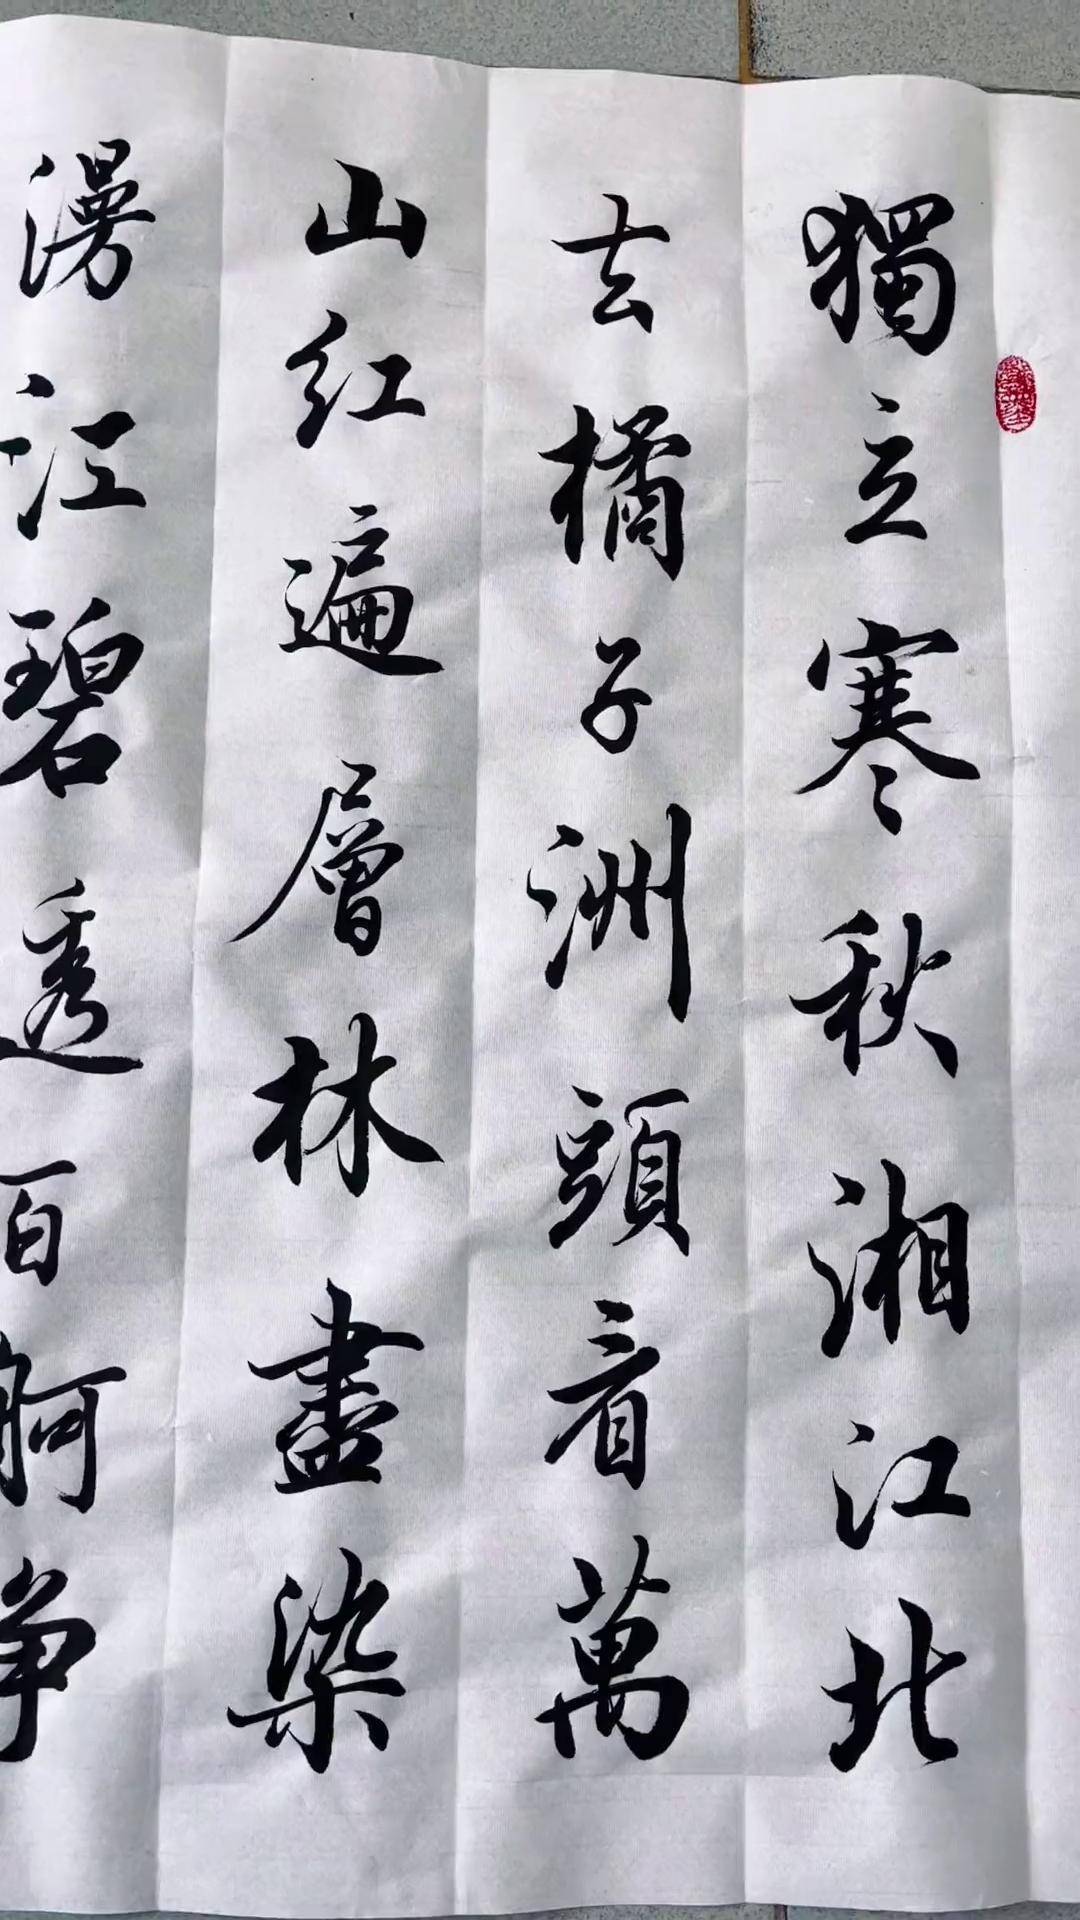 獨立寒秋湘江北
去橘子洲頭看萬
山红遍層林盡染
漫江碧透百舸争